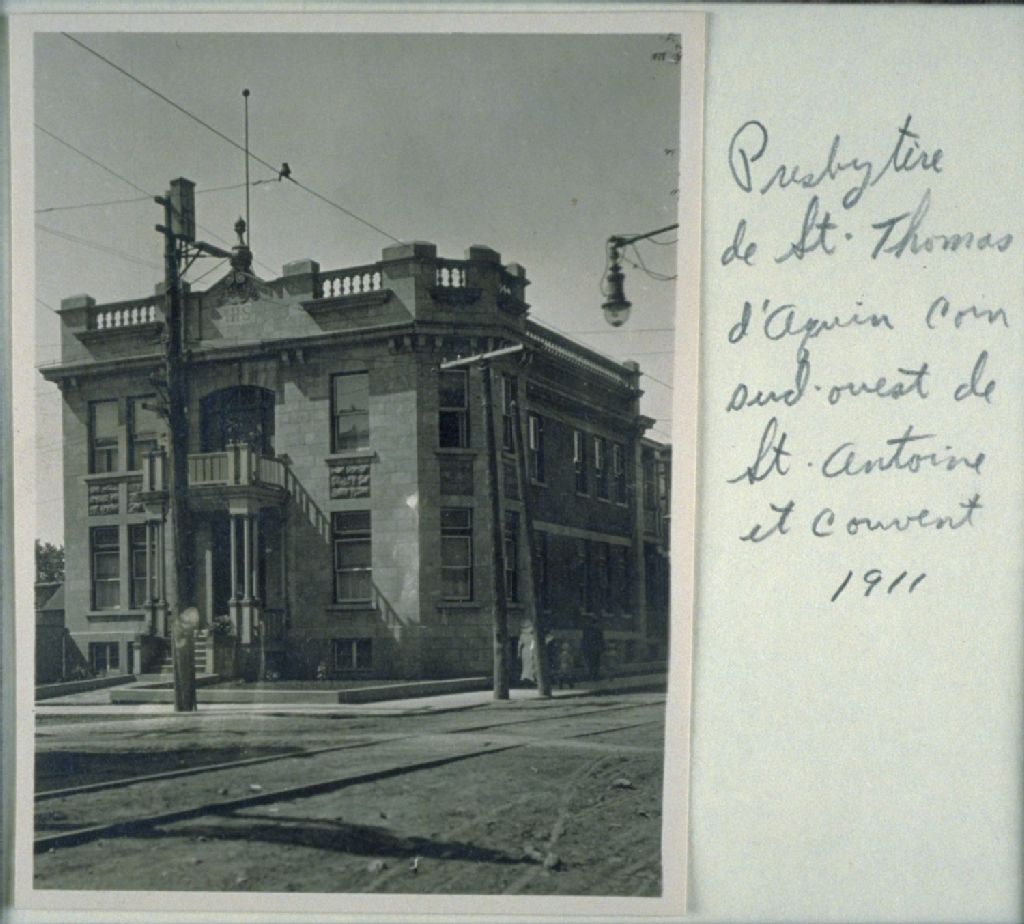 IHS
Presbytère
de St. Thomas
d'Aquin coin
sud-ouest de
St. Antoine
et couvent
1911